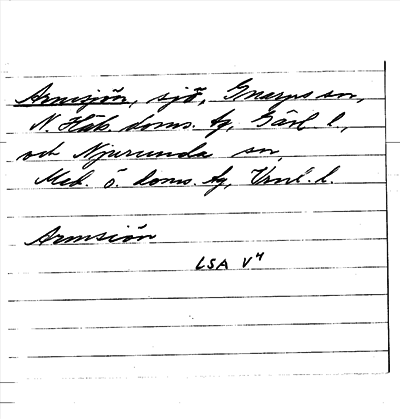 Armsjön, sjö, Gnarps sn,
N. Häls. doms. tg, Gävl. l.,
och Njurunda sn,
Med. ö. doms. tg, Vrnl. l.
Armsjön
LSA V4